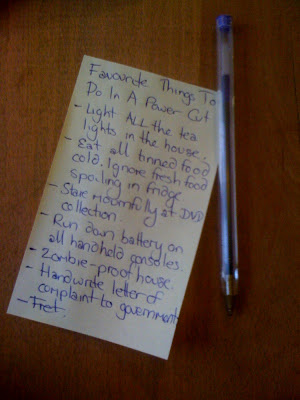 Favourite Things To
Do In A Power Cut
- Light ALL the tea
lights in the house.
- Eat all tinned food
cold. Ignore fresh food
spoiling in fridge
- Stare mournfully at DVD
collection.
- Run down battery on
all handheld consoles.
- Zombie-proof house.
- Handwrite letter of
complaint to government
- Fret.